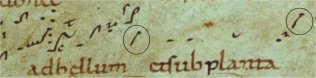 adbellum etsubplanta